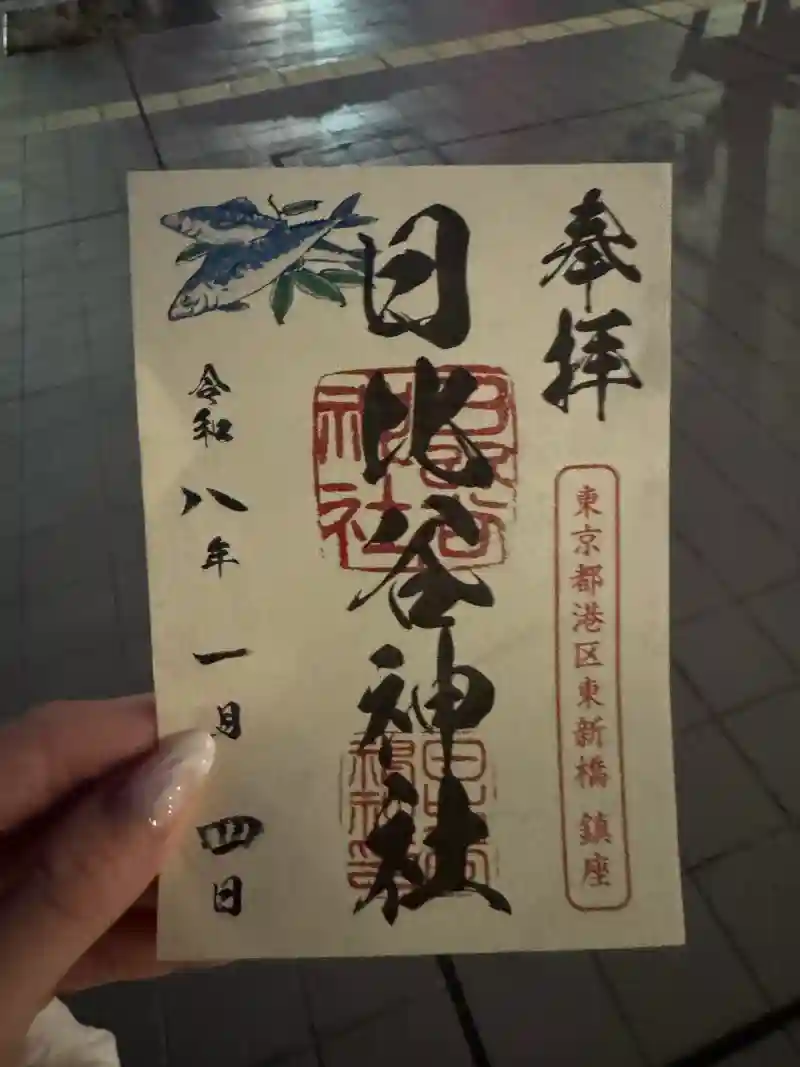 奉拝
東京都港区東新橋 鎮座
日比谷神社
令和八年一月四日